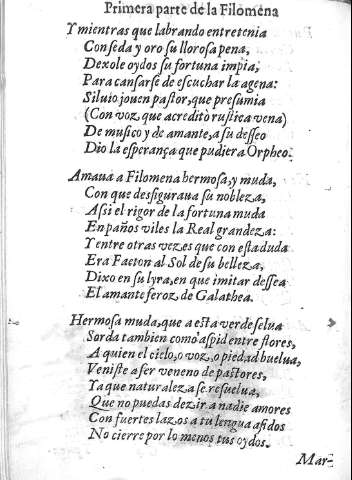 Primera parte de la Filomena
Y mientras que labrando entretenia
Con seda y oro su llorosa pena,
Dexole oydos su fortuna impia,
Para cansarse de escuchar la agena:
Siluio jouen pastor, que presumia
(Con voz, que acreditò rustica vena)
De musico y de amante, a su desseo
Dio la esperança que pudiera Orpheo.
Amaua a Filomena hermosa, y muda,
Con que desfiguraua su nobleza,
Assi el rigor de la fortuna muda
En paños viles la Real grandeza:
Y entre otras vezes que con esta duda
Era Faeton al Sol de su belleza,
Dixo en su lyra, en que imitar dessea
El amante feroz de Galathea.
Hermosa muda, que a esta verde selua
Sorda tambien como aspid entre flores,
A quien el cielo, o voz, o piedad buelua,
Veniste a ser veneno de pastores,
Ya que naturaleza se resuelua,
Que no puedas dezir a nadie amores
Con fuertes lazos a tu lengua asidos
No cierre por lo menos tus oydos.
Mar-